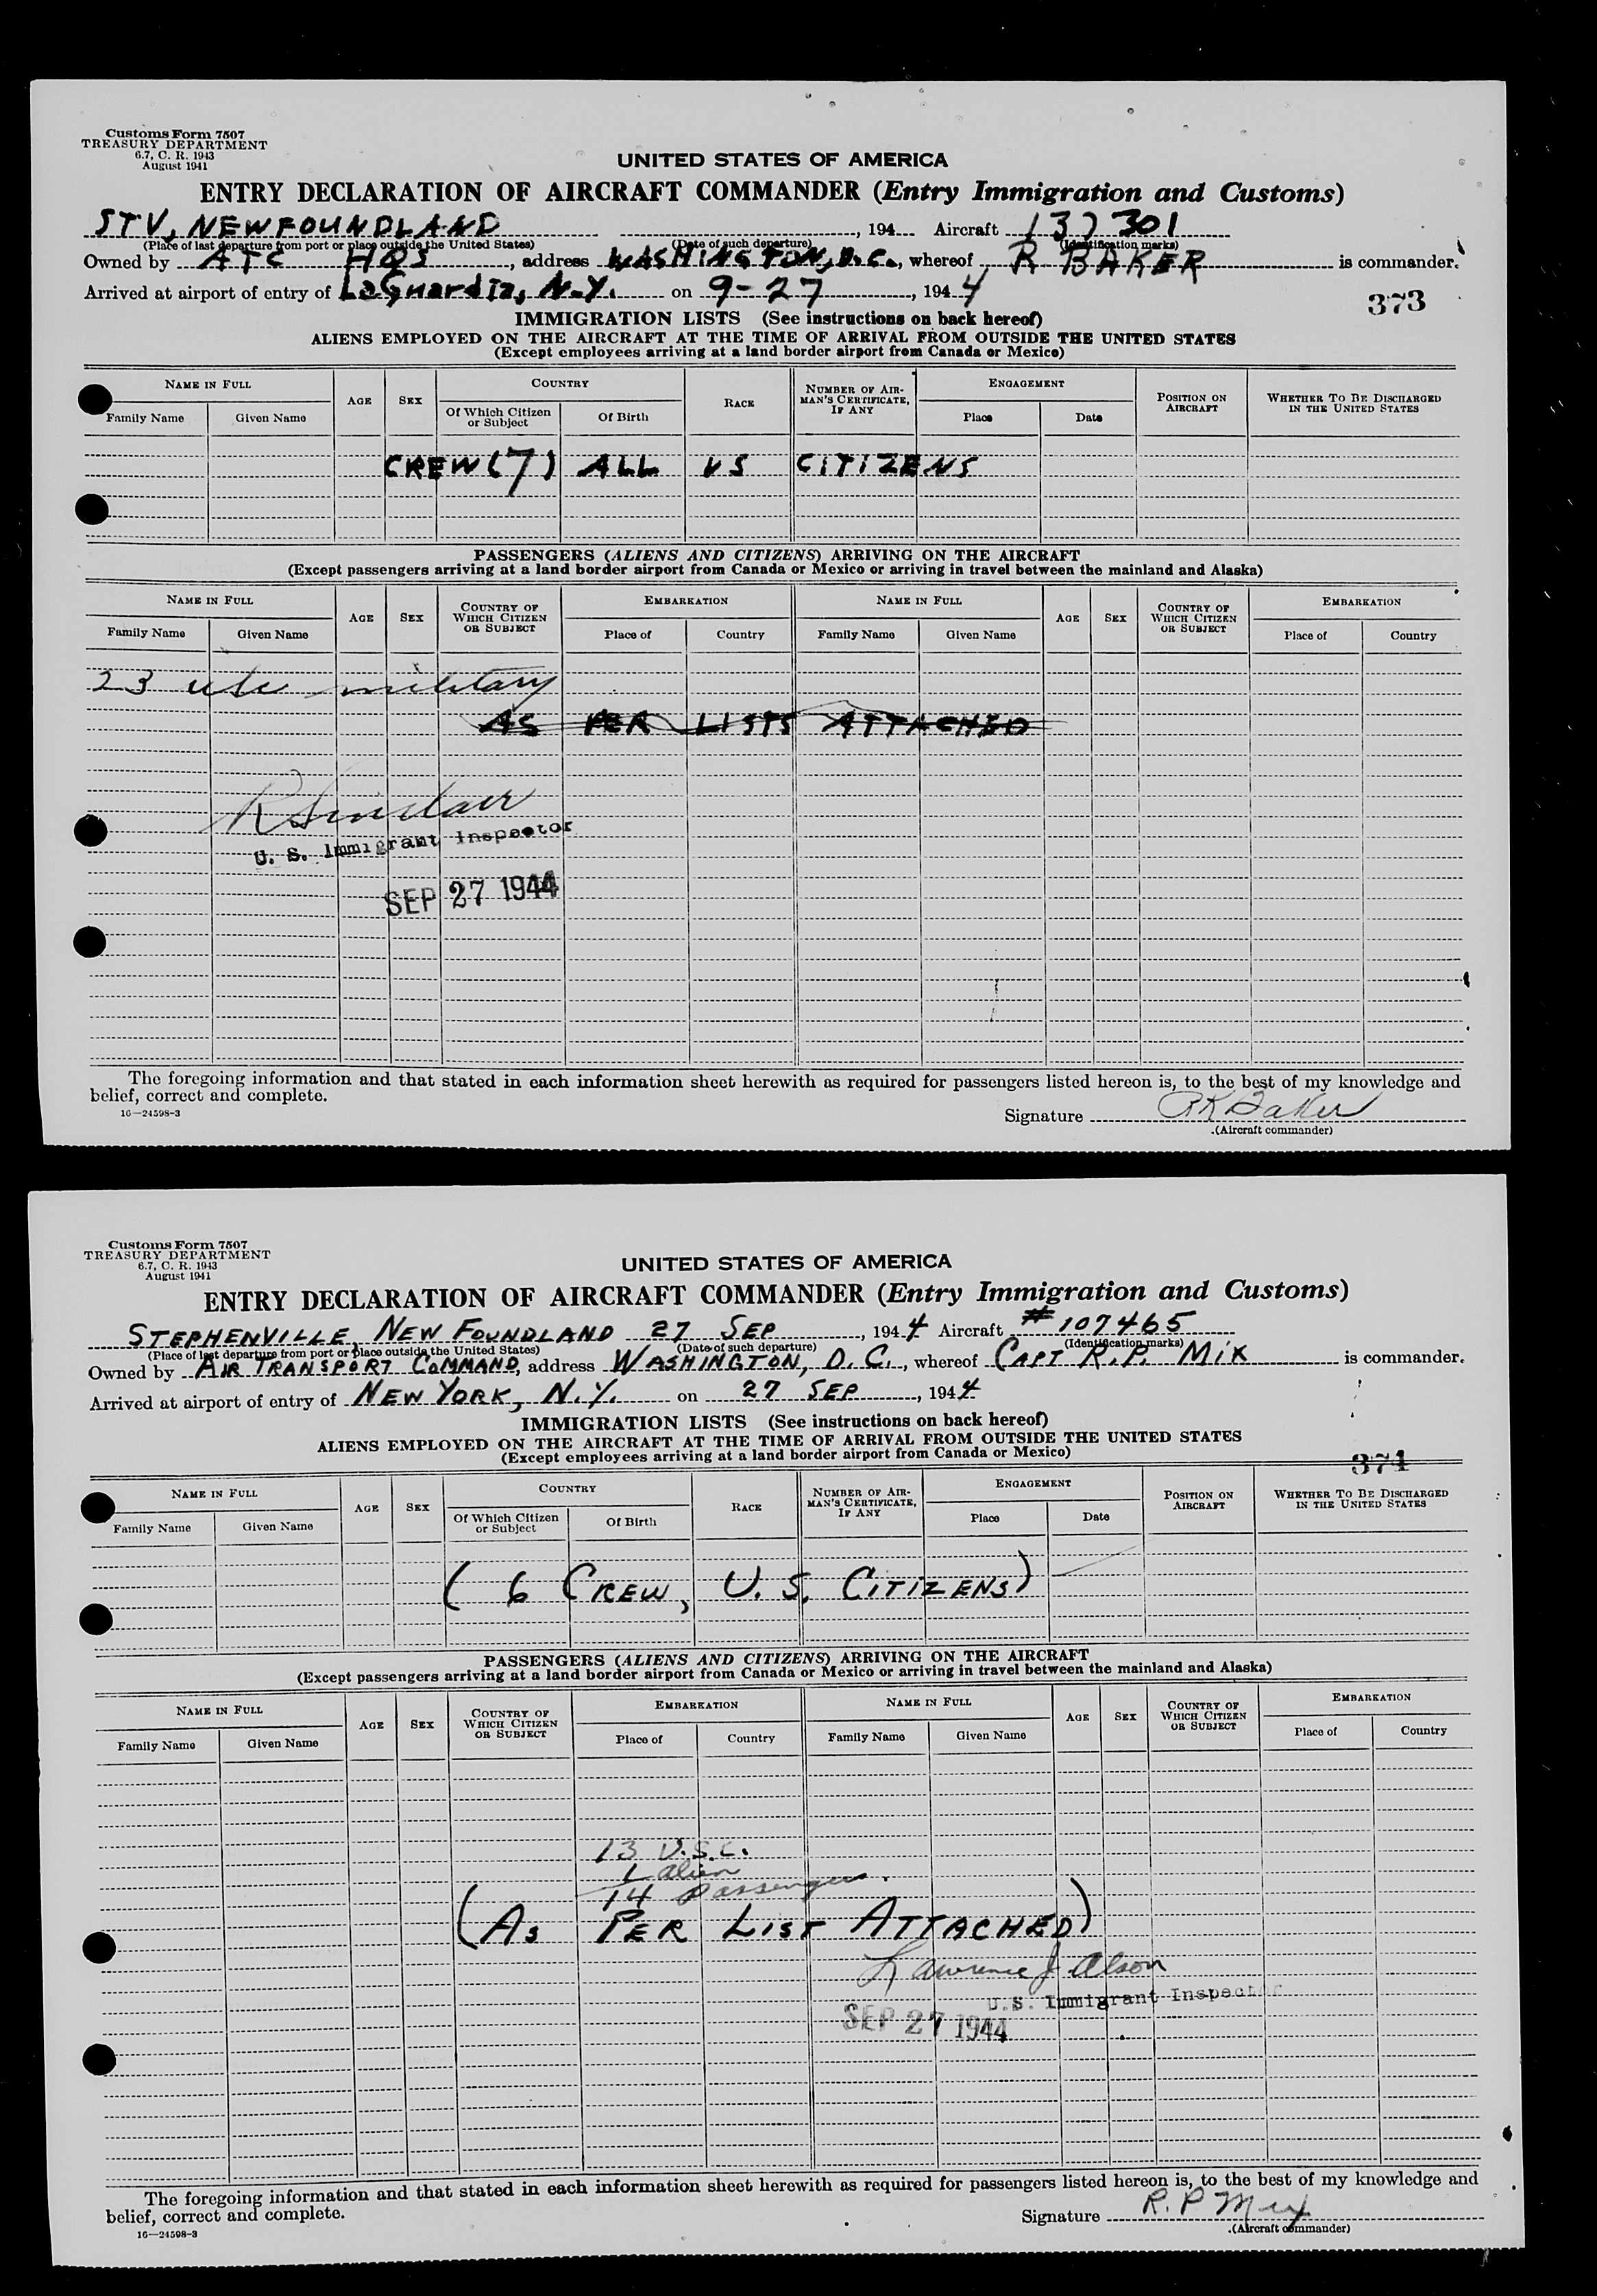 Customs Form 7507
TREASURY DEPARTMENT
6.7, C. R. 1943
August 1941
UNITED STATES OF AMERICA
ENTRY DECLARATION OF AIRCRAFT COMMANDER (Entry Immigration and Customs)
STV, NEWFOUNDLAND , 194 Aircraft 137301
(Place of last departure from port or place outside the United States) (Date of such departure) (Identification marks)
Owned by ATC HQS , address WASHINGTON, D.C., whereof R BAKER is commander.
Arrived at airport of entry of LaGuardia, N.Y. on 9-27 , 1944
373
IMMIGRATION LISTS (See instructions on back hereof)
ALIENS EMPLOYED ON THE AIRCRAFT AT THE TIME OF ARRIVAL FROM OUTSIDE THE UNITED STATES
(Except employees arriving at a land border airport from Canada or Mexico)
NAME IN FULL AGE SEX COUNTRY RACE NUMBER OF AIRMAN'S CERTIFICATE, IF ANY ENGAGEMENT POSITION ON AIRCRAFT WHETHER TO BE DISCHARGED IN THE UNITED STATES
Family Name Given Name Of Which Citizen or Subject Of Birth Place Date
CREW (7) ALL US CITIZENS
PASSENGERS (ALIENS AND CITIZENS) ARRIVING ON THE AIRCRAFT
(Except passengers arriving at a land border airport from Canada or Mexico or arriving in travel between the mainland and Alaska)
NAME IN FULL AGE SEX COUNTRY OF WHICH CITIZEN OR SUBJECT EMBARKATION NAME IN FULL AGE SEX COUNTRY OF WHICH CITIZEN OR SUBJECT EMBARKATION
Family Name Given Name Place of Country Family Name Given Name Place of Country
23 military
AS PER LISTS ATTACHED
R Sinclair
U. S. Immigrant Inspector
SEP 27 1944
The foregoing information and that stated in each information sheet herewith as required for passengers listed hereon is, to the best of my knowledge and
belief, correct and complete.
16—24598-3
Signature RK Baker
(Aircraft commander)
Customs Form 7507
TREASURY DEPARTMENT
6.7, C. R. 1943
August 1941
UNITED STATES OF AMERICA
ENTRY DECLARATION OF AIRCRAFT COMMANDER (Entry Immigration and Customs)
STEPHENVILLE, NEW FOUNDLAND 27 SEP , 1944 Aircraft #107465
(Place of last departure from port or place outside the United States) (Date of such departure) (Identification marks)
Owned by AIR TRANSPORT COMMAND, address WASHINGTON, D.C., whereof CAPT R.P. MIX is commander.
Arrived at airport of entry of NEW YORK, N.Y. on 27 SEP , 1944
IMMIGRATION LISTS (See instructions on back hereof)
ALIENS EMPLOYED ON THE AIRCRAFT AT THE TIME OF ARRIVAL FROM OUTSIDE THE UNITED STATES
(Except employees arriving at a land border airport from Canada or Mexico)
374
NAME IN FULL AGE SEX COUNTRY RACE NUMBER OF AIRMAN'S CERTIFICATE, IF ANY ENGAGEMENT POSITION ON AIRCRAFT WHETHER TO BE DISCHARGED IN THE UNITED STATES
Family Name Given Name Of Which Citizen or Subject Of Birth Place Date
(6 CREW, U.S. CITIZENS)
PASSENGERS (ALIENS AND CITIZENS) ARRIVING ON THE AIRCRAFT
(Except passengers arriving at a land border airport from Canada or Mexico or arriving in travel between the mainland and Alaska)
NAME IN FULL AGE SEX COUNTRY OF WHICH CITIZEN OR SUBJECT EMBARKATION NAME IN FULL AGE SEX COUNTRY OF WHICH CITIZEN OR SUBJECT EMBARKATION
Family Name Given Name Place of Country Family Name Given Name Place of Country
13 U.S.C.
1 alien
14 Passengers.
(AS PER LIST ATTACHED)
Lawrence J Olson
U.S. Immigrant Inspector
SEP 27 1944
The foregoing information and that stated in each information sheet herewith as required for passengers listed hereon is, to the best of my knowledge and
belief, correct and complete.
16—24598-3
Signature R.P Mix
(Aircraft commander)